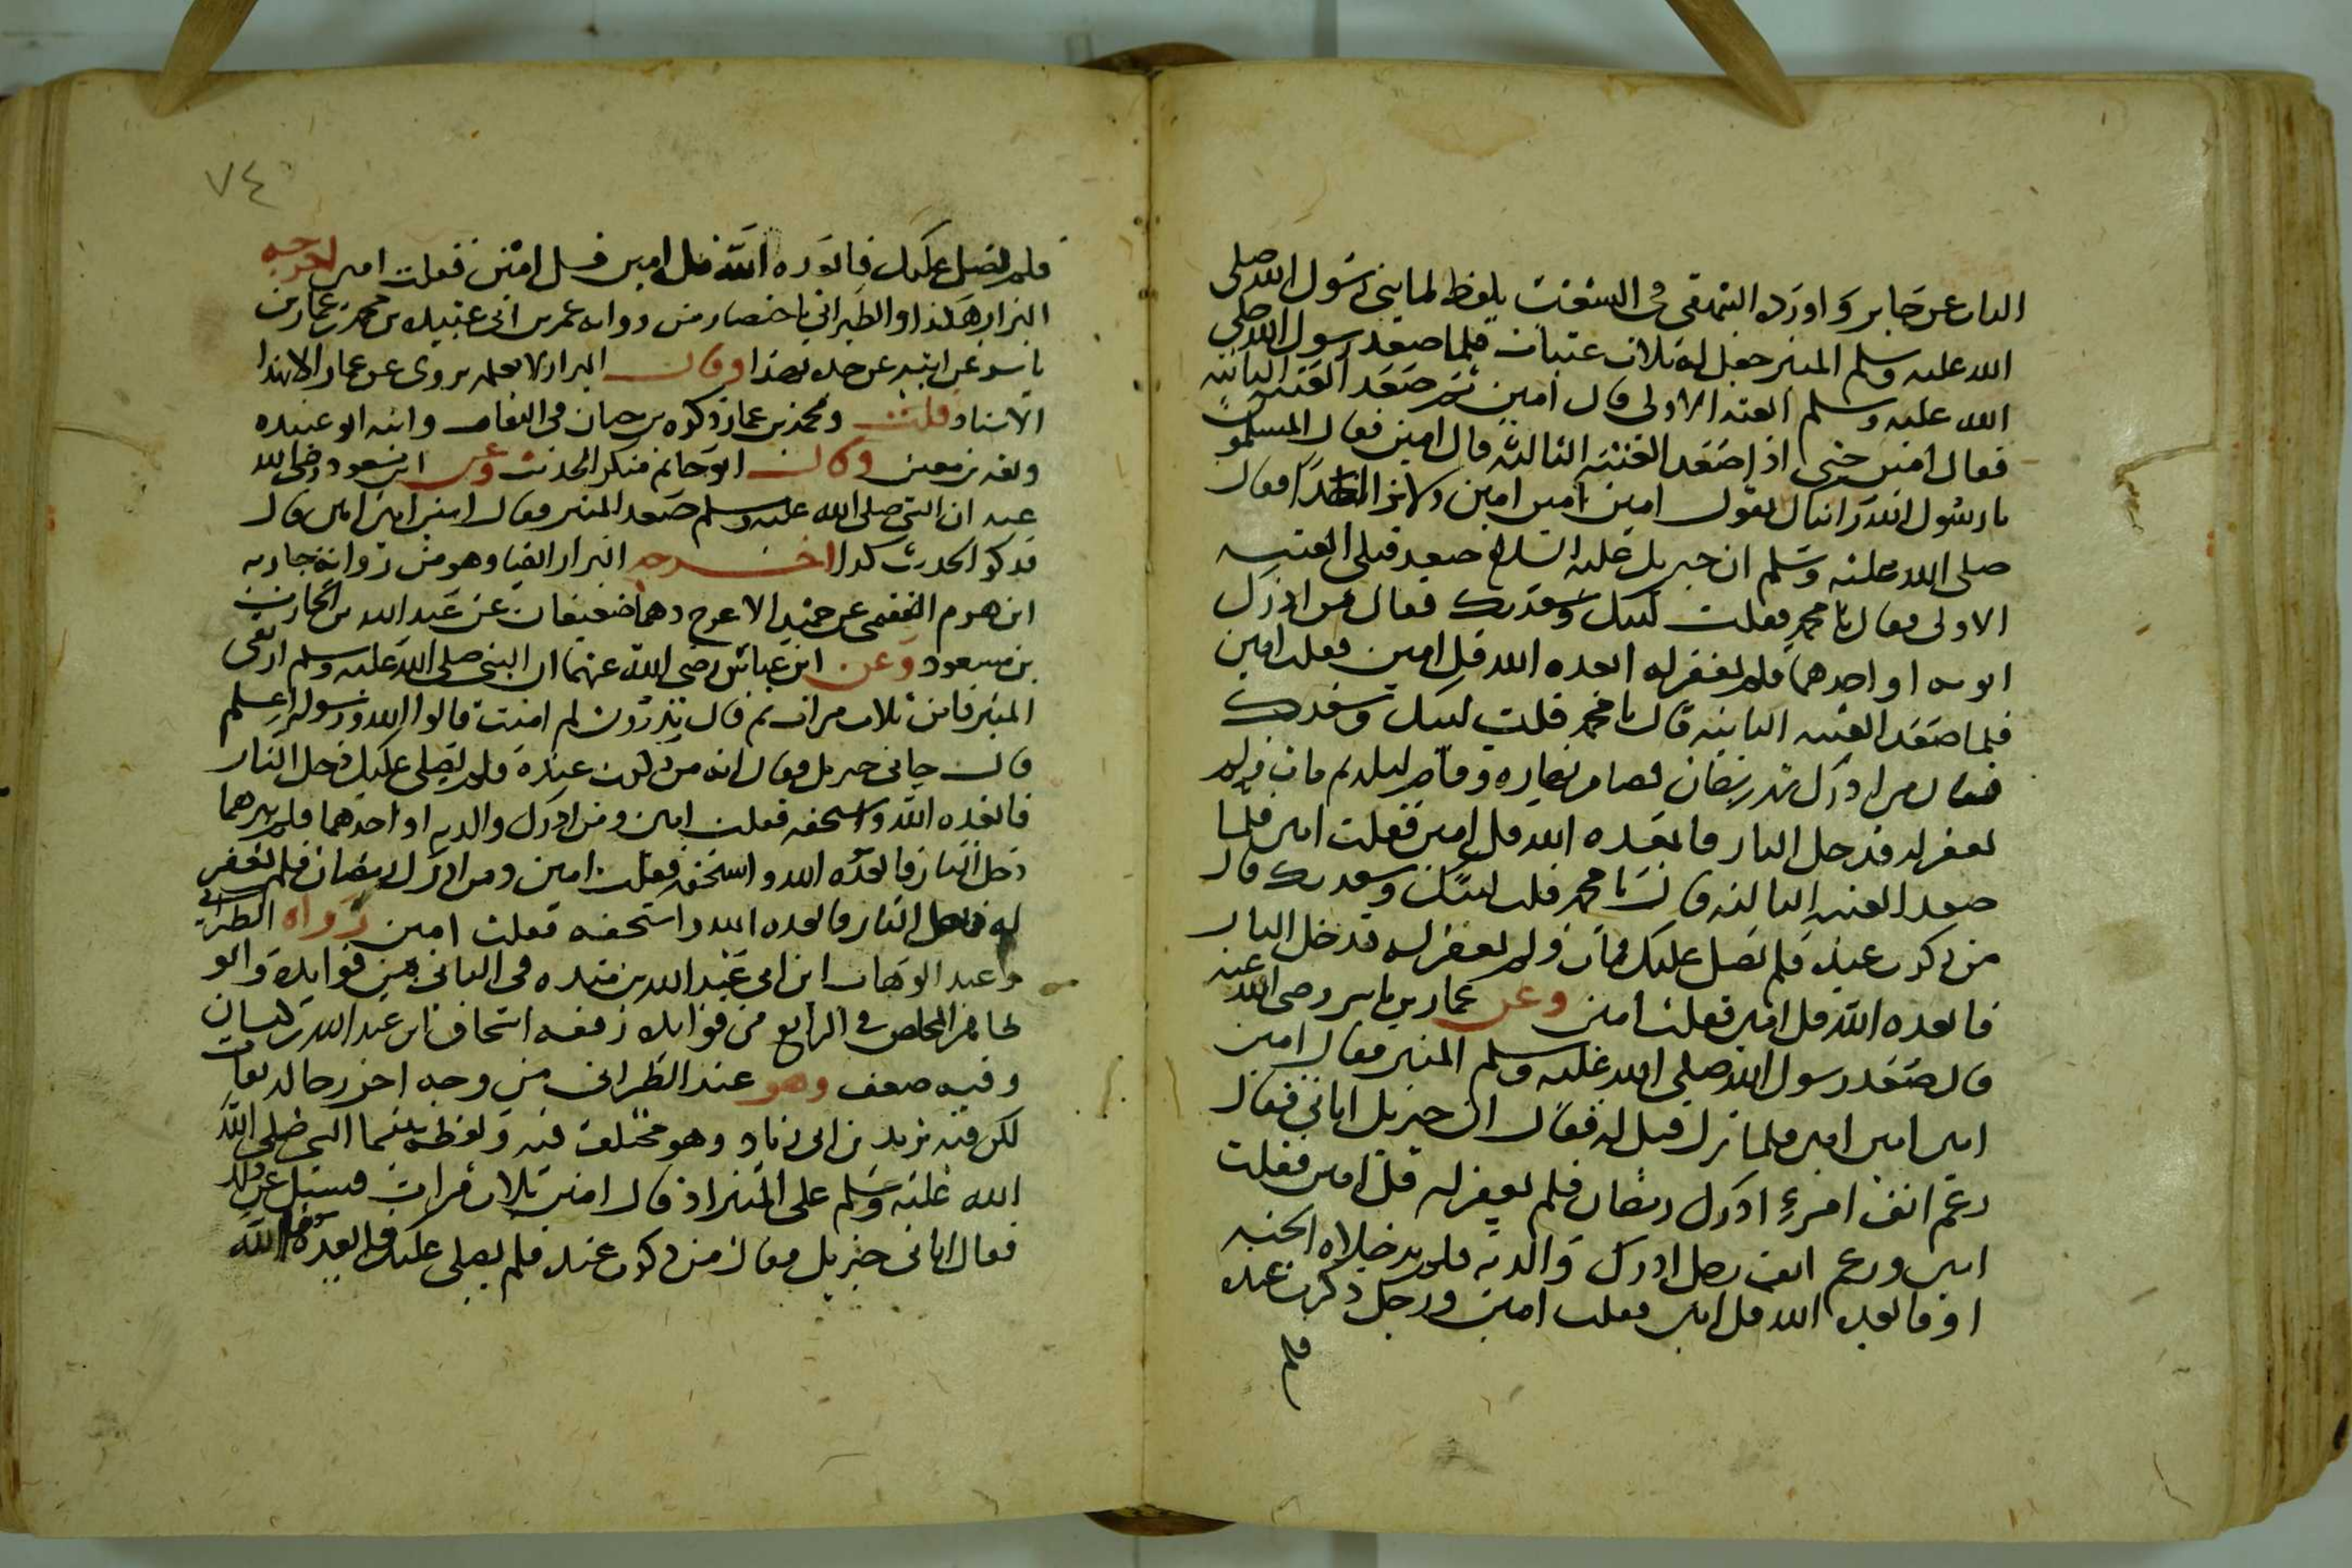 الباب عن جابر واورده البيهقي في الشعب بلفظ لما بنى رسول الله صلى
الله عليه وسلم المنبر جعل له ثلاث عتبات فلما صعد رسول الله صلى
الله عليه وسلم العتبة الاولى قال امين ثم صعد العتبة الثانية
فقال امين حتى اذا صعد العتبة الثالثة قال امين فقال المسلمون
يا رسول الله رايناك تقول امين امين امين ولا نرا احدا فقال
صلى الله عليه وسلم ان جبريل عليه السلام صعد قبلي العتبة
الاولى فقال يا محمد فقلت لبيك وسعديك فقال من ادرك
ابويه او احدهما فلم يغفر له ابعده الله قل امين فقلت امين
فلما صعد العتبة الثانية قال يا محمد قلت لبيك وسعديك
فقال من ادرك شهر رمضان فصام نهاره وقام ليله ثم مات ولم
يغفر له فدخل النار فابعده الله قل امين فقلت امين فلما
صعد العتبة الثالثة قال يا محمد قلت لبيك وسعديك قال
من ذكرت عنده فلم يصل عليك فمات ولم يغفر له فدخل النار
فابعده الله قل امين فقلت امين وعن عمار بن ياسر رضي الله عنه
قال صعد رسول الله صلى الله عليه وسلم المنبر فقال امين
امين امين امين فلما نزل قيل له فقال ان جبريل اتاني فقال
رغم انف امرئ ادرك رمضان فلم يغفر له قل امين فقلت
امين ورغم انف رجل ادرك والديه فلم يدخلاه الجنة
او فابعده الله قل امين فقلت امين ورجل ذكرت عنده
فلم
٧٤
فلم يصل عليك فابعده الله قل امين قل امين فقلت امين اخرجه
البزار هكذا والطبراني باختصار من رواية عمر بن ابي عبيدة بن محمد بن عمار بن
ياسر عن ابيه عن جده بهذا وقال البزار لا نعلمه يروى عن عمار الا بهذا
الاسناد قلت ومحمد بن عمار ذكره بن حبان في الثقات وابنه ابو عبيدة
وثقه بن معين وقال ابو حاتم منكر الحديث وعن ابن مسعود رضي الله
عنه ان النبي صلى الله عليه وسلم صعد المنبر فقال امين امين امين قال
فذكر الحديث كذا اخرجه البزار ايضا وهو من رواية جارية
ابن هرم الفقيمي عن حميد الاعرج وهما ضعيفان عن عبد الله بن الحارث
بن مسعود وعن ابن عباس رضي الله عنهما ان النبي صلى الله عليه وسلم ارتقى
المنبر فامن ثلاث مرات ثم قال تدرون لم امنت قالوا الله ورسوله اعلم
قال جاني جبريل فقال انه من ذكرت عنده فلم يصلي عليك دخل النار
فابعده الله واسحقه فقلت امين ومن ادرك والديه او احدهما فلم يبرهما
دخل النار فابعده الله واسحقه فقلت امين ومن ادرك رمضان فلم يغفر
له دخل النار فابعده الله واسحقه فقلت امين رواه الطبراني
وعبد الوهاب ابن ابي عبد الله بن منده في الثاني من فوايده وابو
طاهر المخلص في الرابع من فوايده وفيه اسحاق ابن عبد الله بن كيسان
وفيه ضعف وهو عند الطبراني من وجه اخر رجاله ثقات
لكن فيه يزيد بن ابي زياد وهو مختلف فيه ولفظه بينما النبي صلى الله
الله عليه وسلم على المنبر اذ قال امين ثلاث مرات فسئل عن ذلك
فقال اتاني جبريل فقال من ذكرت عنده فلم يصلي عليك فابعده الله